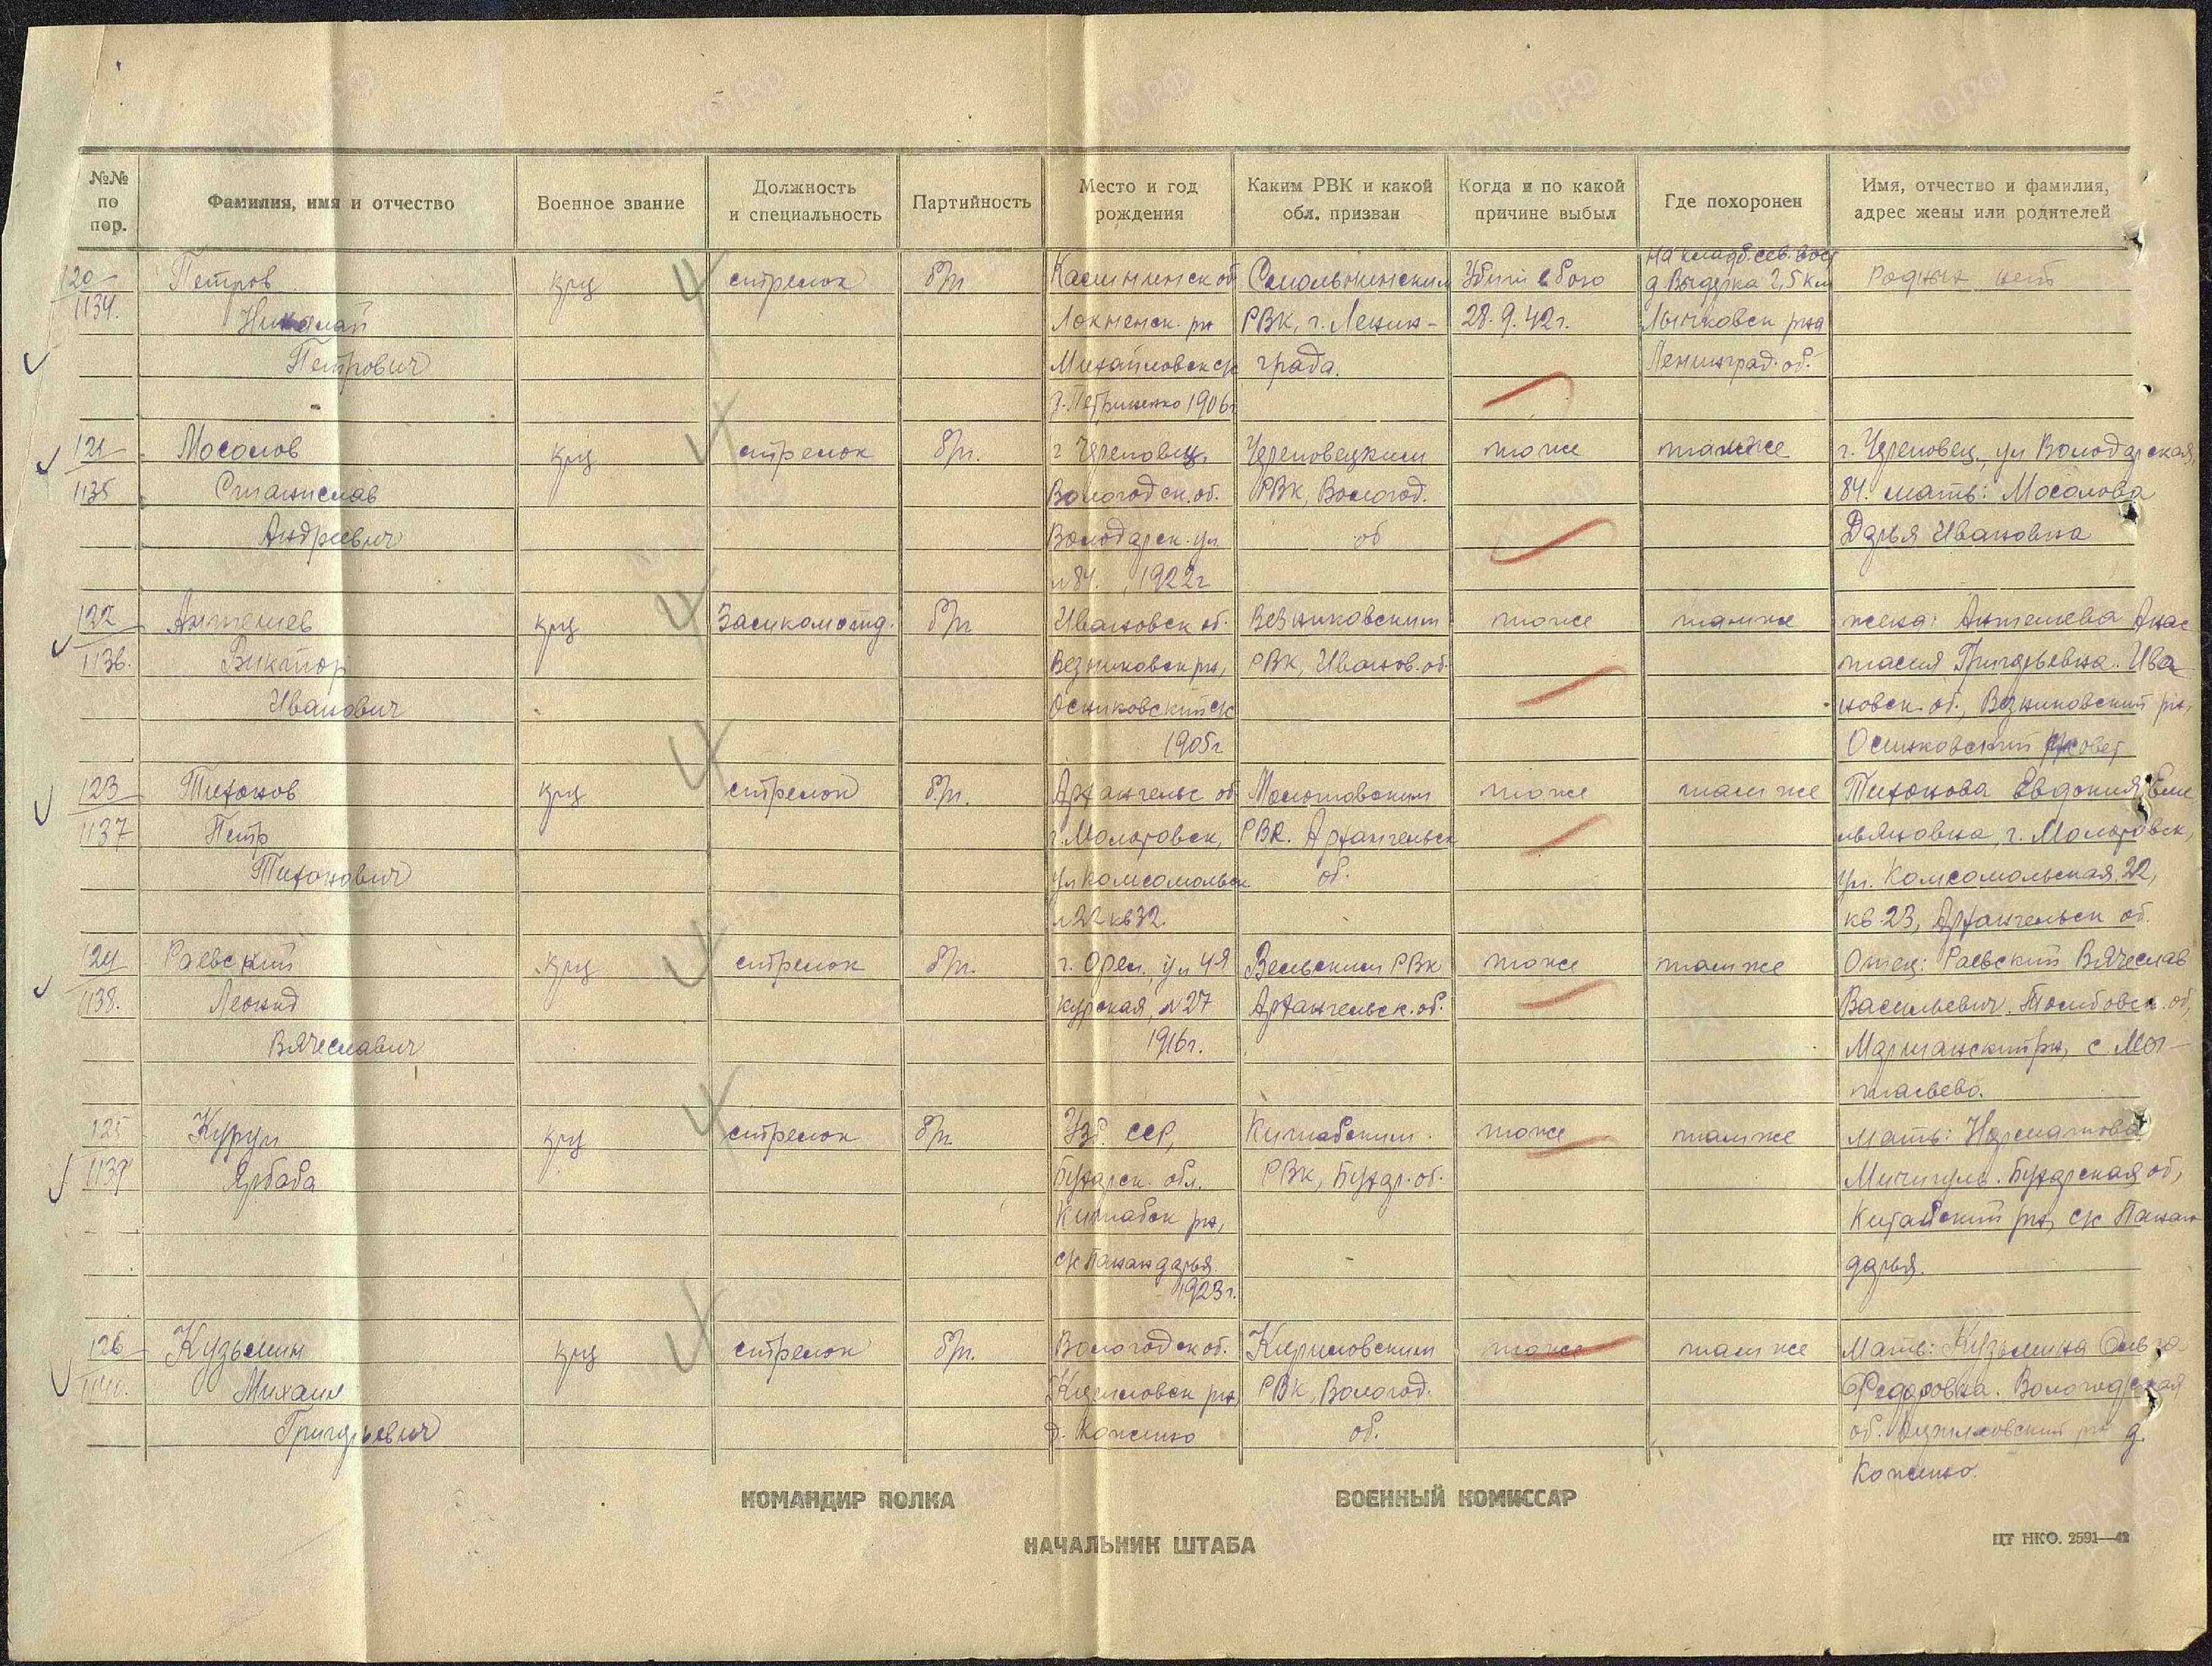 №№ по пор.
Фамилия, имя и отчество
Военное звание
Должность и специальность
Партийность
Место и год рождения
Каким РВК и какой обл. призван
Когда и по какой причине выбыл
Где похоронен
Имя, отчество и фамилия, адрес жены или родителей
120
1134.
Петров
Николай
Петрович
крц
стрелок
б/п
Калининск об
Локненск. рн
Михайловск с/с
1906г
Смольнинским
РВК, г. Ленин-
града.
Убит в бою
28.9.42г.
на кладб. сев. вост
д Выдерка 2,5 км
Лычковск р-на
Ленинград. об.
Родных нет
121
1135
Мосолов
Станислав
Андреевич
крц
стрелок
б/п.
г Череповец,
Вологодск. об.
Володарск. ул
н 84. , 1922г
Череповецким
РВК, Вологод.
об
тоже
там же
г. Череповец, ул Володарская,
84. мать: Мосолова
Дарья Ивановна
122
1136.
Антешев
Виктор
Иванович
крц
Замкомотд.
б/п
Ивановск об.
Вязниковск рн,
Осинковский с/с
1905г
Вязниковским
РВК, Иванов. об.
тоже
там же
жена: Антешева Анас
тасия Григорьевна. Ива
новск. об., Вязниковский рн,
Осинковский с/совет
123
1137
Тихонов
Петр
Тихонович
крц
стрелок
б/п.
Архангельс об
г. Молотовск,
ул Комсомольск
н 22 кв 32.
Молотовским
РВК. Архангельск
об.
тоже
там же
Тихонова Евдокия Еме
льяновна, г. Молотовск,
ул. Комсомольская, 22,
кв. 23, Архангельск об.
124
1138.
Раевский
Леонид
Вячеславич
крц
стрелок
б/п.
г. Орел, ул 4-я
курская, н 27
1916г.
Вельским РВК
Архангельск. об.
тоже
там же
Отец: Раевский Вячеслав
Васильевич. Тамбовск. об,
Моршанский рн, с Мы-
тасьево.
125
1139
Курул
Ярбаба
крц
стрелок
б/п
Узб. ССР,
Бухарск. обл.
Китабск рн,
с/с Панандарья
1923г.
Китабским
РВК, Бухар. об.
тоже
там же
Мать: Нарматова
Мичигуль. Бухарская об,
Китабский рн, с/с Панан
дарья.
126
1140.
Кузьмин
Михаил
Григорьевич
крц
стрелок
б/п.
Вологодск об.
Кирилловск рн,
д. Кожино
Кирилловским
РВК, Вологод.
об.
тоже
там же
Мать: Кузьмина Ольга
Федоровна. Вологодская
об. Кирилловский рн д.
Кожино.
КОМАНДИР ПОЛКА
ВОЕННЫЙ КОМИССАР
НАЧАЛЬНИК ШТАБА
ЦТ НКО. 2591—42